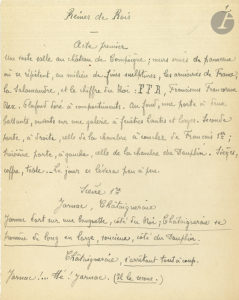 Reines de Rois
Acte premier
Une vaste salle au château de Compiègne ; murs ornés de panneaux
où se répètent, au milieu de fines sculptures, les armoiries de France,
la Salamandre, et le chiffre du Roi : F F R, Franciscus Francorum
Rex. Plafond doré à compartiments. Au fond, une porte à deux
battants, ouverte sur une galerie à fenêtres hautes et larges. Seconde
porte, à droite, celle de la chambre à coucher de François 1er ;
troisième porte, à gauche, celle de la chambre du Dauphin. Sièges,
coffre, table. Le jour se lèvera peu à peu.
Scène 1re
Jarnac, Châtaigneraie
Jarnac dort sur une banquette, côté du Roi ; Châtaigneraie se
promène de long en large, soucieux, côté du Dauphin.
Châtaigneraie, s'arrêtant tout à coup.
Jarnac !... Hé ! Jarnac ! (Il le secoue.)